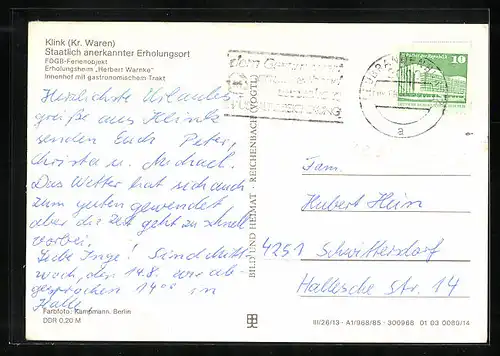 Klink (Kr. Waren)
Staatlich anerkannter Erholungsort
FDGB-Ferienobjekt
Erholungsheim „Herbert Warnke"
Innenhof mit gastronomischem Trakt
Herzlichste Urlaubs
grüße aus Klink
senden Euch Peter,
Christa u. Michael.
Das Wetter hat sich auch
zum guten gewendet
aber die Zeit geht zu schnell
vorbei.
Liebe Inge! Sind Mitt-
woch, den 14.8. wie ab-
gesprochen 14°° in
Halle.
Farbfoto: Kampmann, Berlin
DDR 0,20 M
BILD UND HEIMAT · REICHENBACH (VOGTL)
10
a
Fam.
Hubert Hein
4251 Schwittersdorf
Hallesche Str. 14
III/26/13 · A1/968/85 · 300968 01 03 0089/14